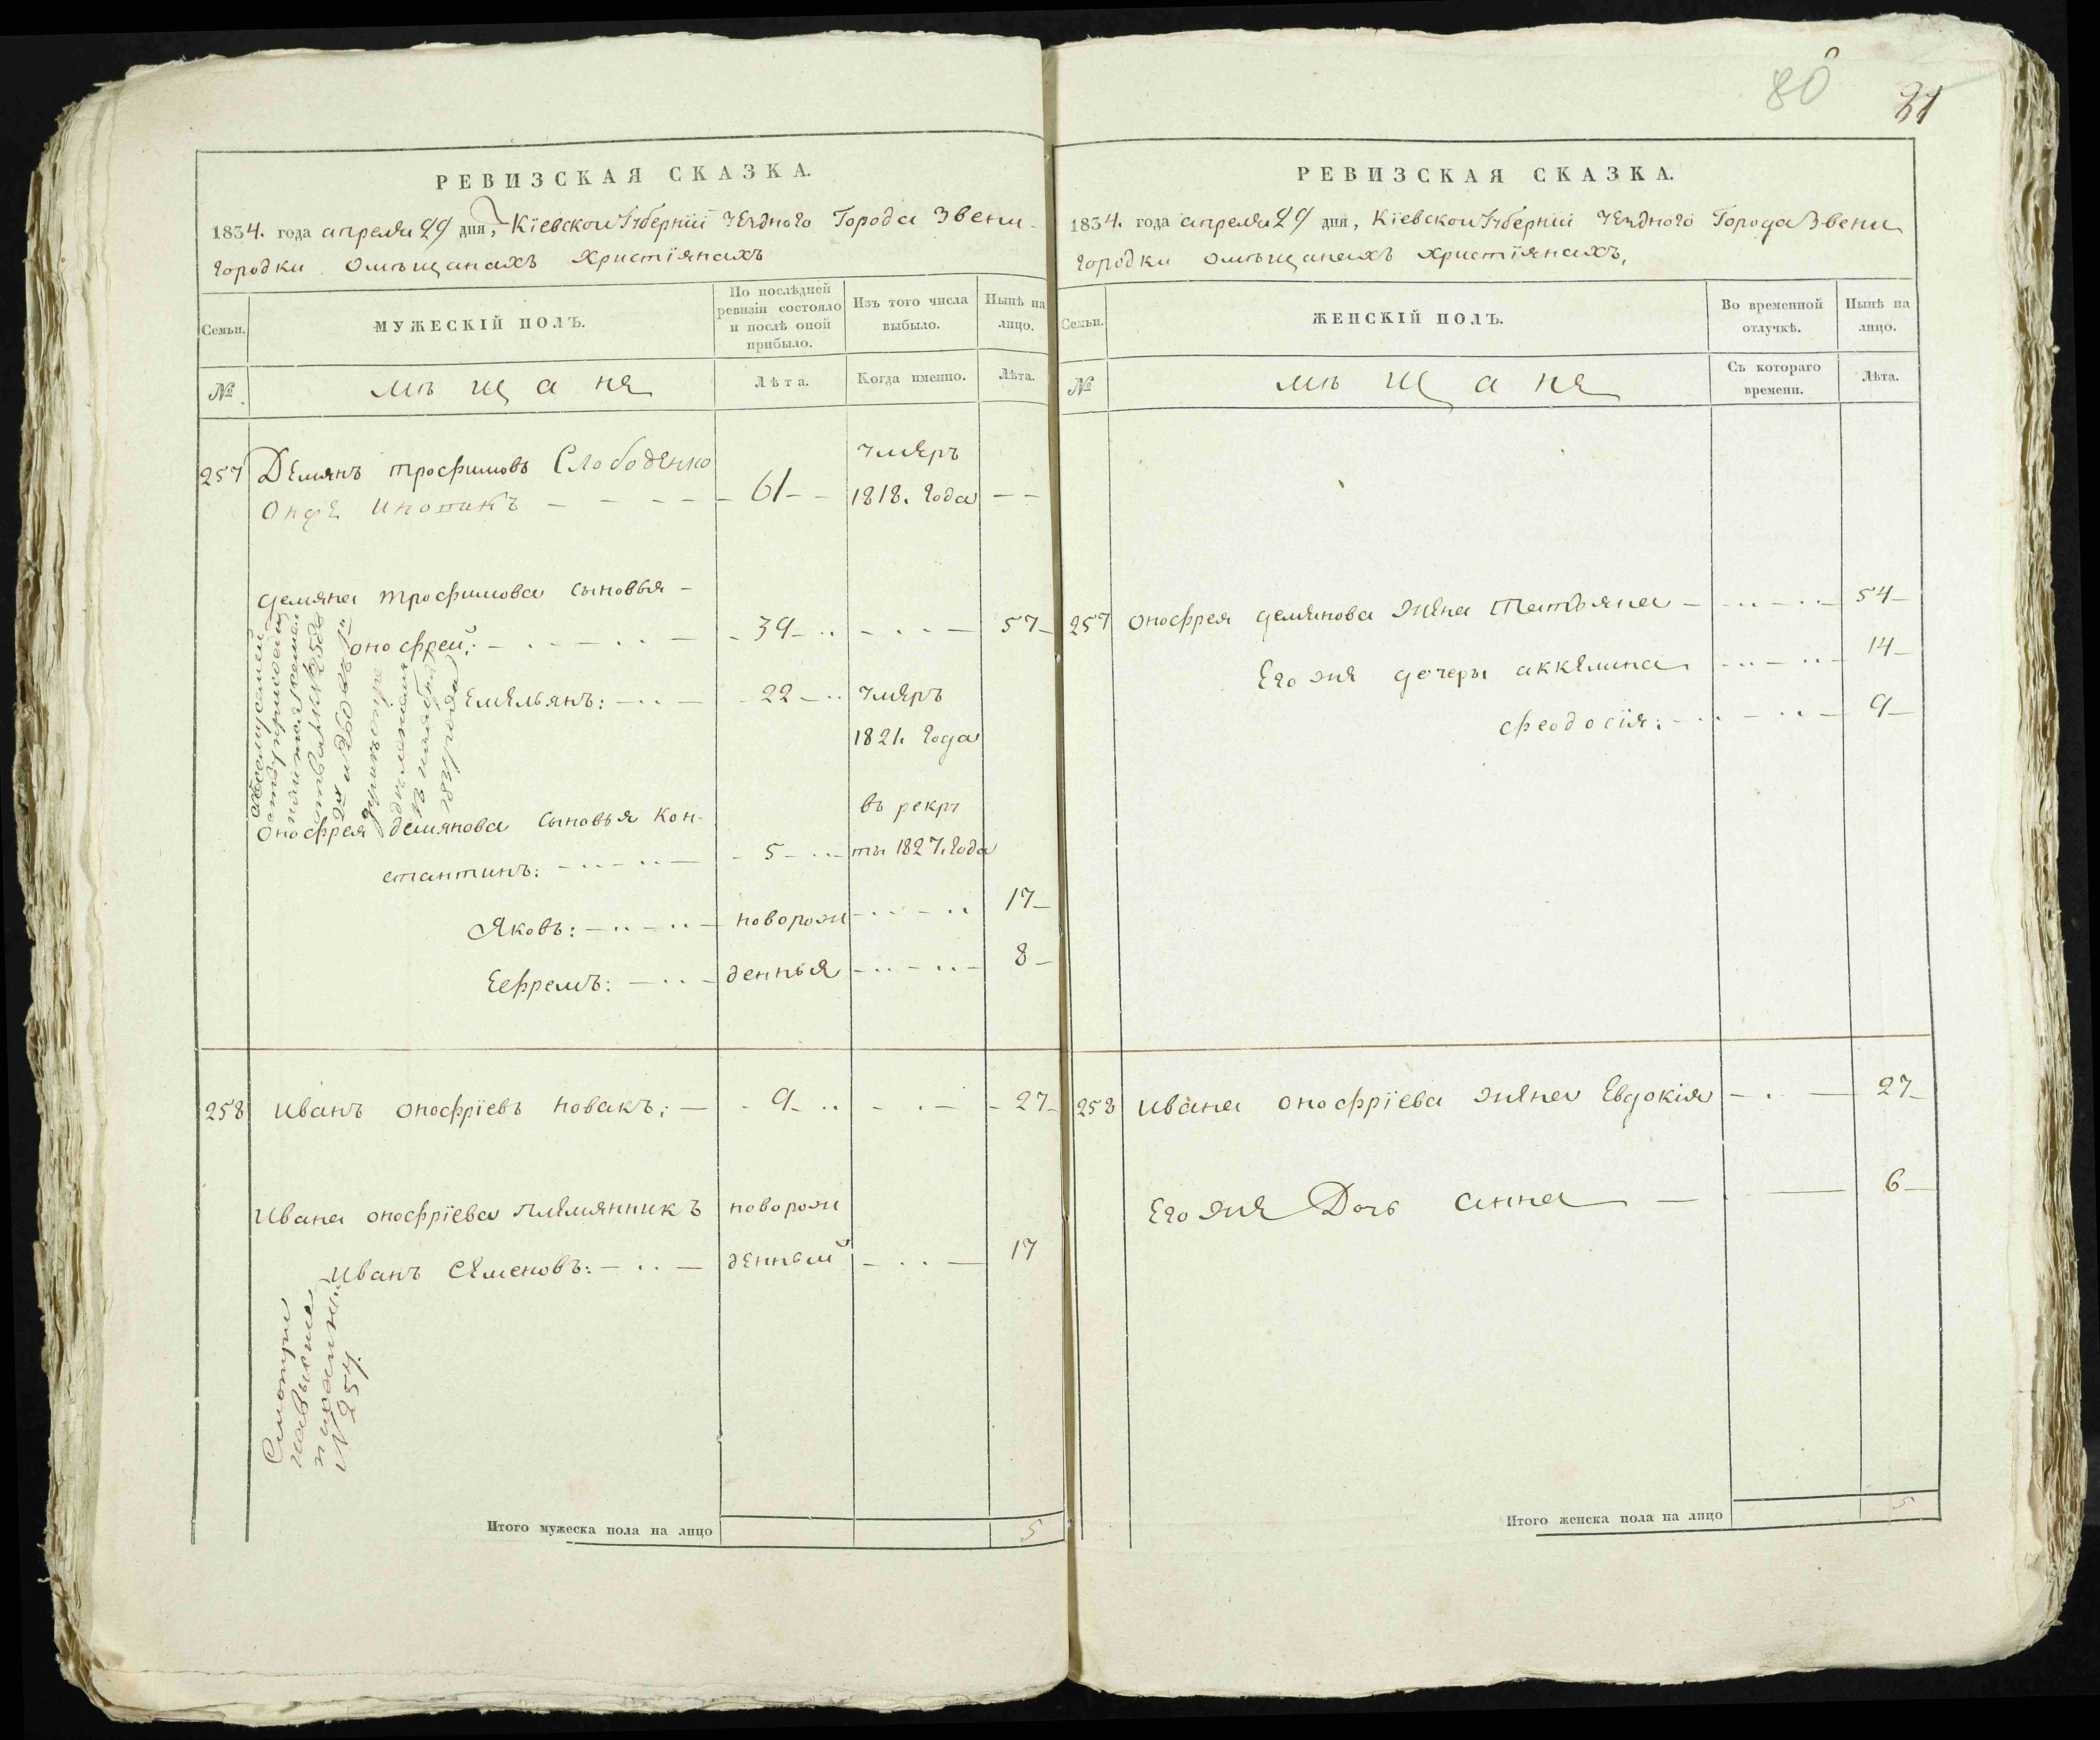 80
81
РЕВИЗСКАЯ СКАЗКА.
1834. года апреля 29 дня, Кіевской Губерніи уезднаго Города Звени-
городки омѣщанахъ христіянахъ
Семьи.
МУЖЕСКІЙ ПОЛЪ.
По послѣдней
ревизіи состояло
и послѣ оной
прибыло.
Изъ того числа
выбыло.
Нынѣ на
лицо.
№
мѣщане
Лѣта.
Когда именно.
Лѣта.
257 Демянъ трофимовъ Слободенко умеръ
61 1818. года
демяна трофимова сыновья
онофрей: 39 57
Емельянъ: 22 умеръ
1821 года
Онофрея демянова сыновья Кон- въ рекру
стантинъ: 5 ты 1827. года
Яковъ: новорож 17
Ефремъ: денныя 8
258 иванъ онофріевъ новакъ: 9 27
Ивана онофріева племянникъ новорож
Иванъ Семеновъ: денный 17
Смотри
№ 257.
Итого мужеска пола на лицо 5
РЕВИЗСКАЯ СКАЗКА.
1834. года апреля 29 дня, Кіевской Губерніи уезднаго Города Звени
городки омѣщанахъ христіянахъ,
Семьи.
ЖЕНСКІЙ ПОЛЪ.
Во временной
отлучкѣ.
Нынѣ на
лицо.
№
мѣщане
Съ котораго
времени.
Лѣта.
257 онофрея демянова жена Татьяна 54
Его же дочеры аккелина 14
феодосія: 9
258 ивана онофріева жена Евдокія 27
Его же Дочь анна 6
Итого женска пола на лицо 5